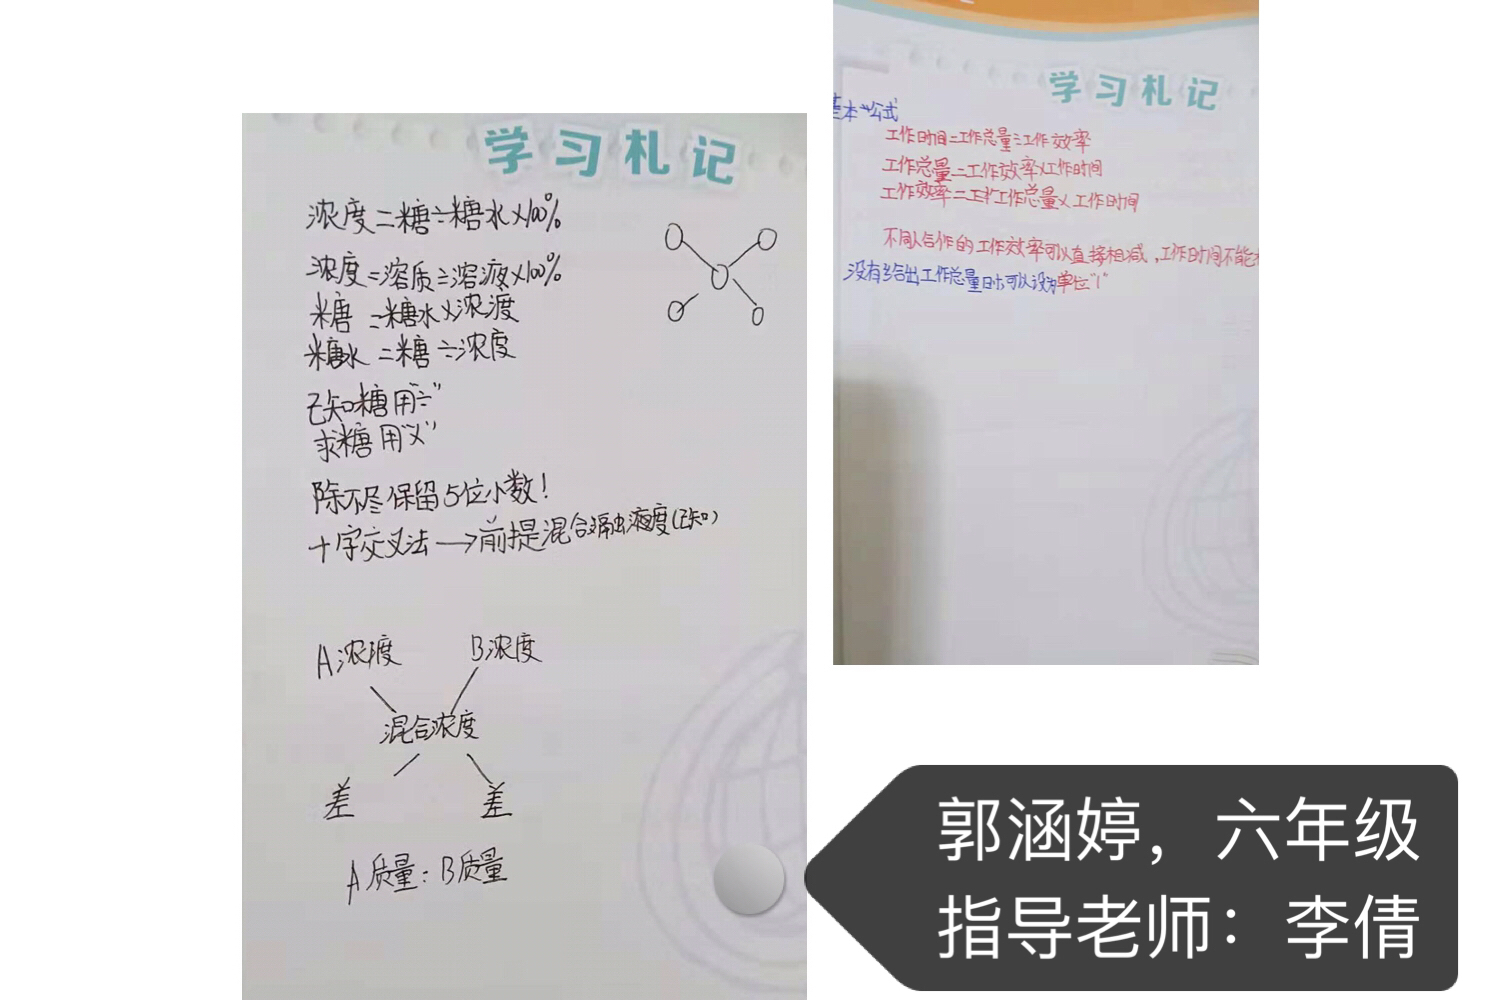 学习札记
浓度=糖÷糖水×100%
浓度=溶质÷溶液×100%
糖=糖水×浓渡
糖水=糖÷浓度
已知糖用"÷"
求糖用"×"
除不尽保留5位小数!
十字交叉法→前提混合浓度(已知)
A浓渡 B浓度
混合浓度
差 差
A质量:B质量
学习札记
基本公式
工作时间=工作总量÷工作效率
工作总量=工作效率×工作时间
工作效率=工作总量×工作时间
不同人合作的工作效率可以直接相减,工作时间不能
没有给出工作总量时,可以设为单位"1"
郭涵婷，六年级
指导老师：李倩